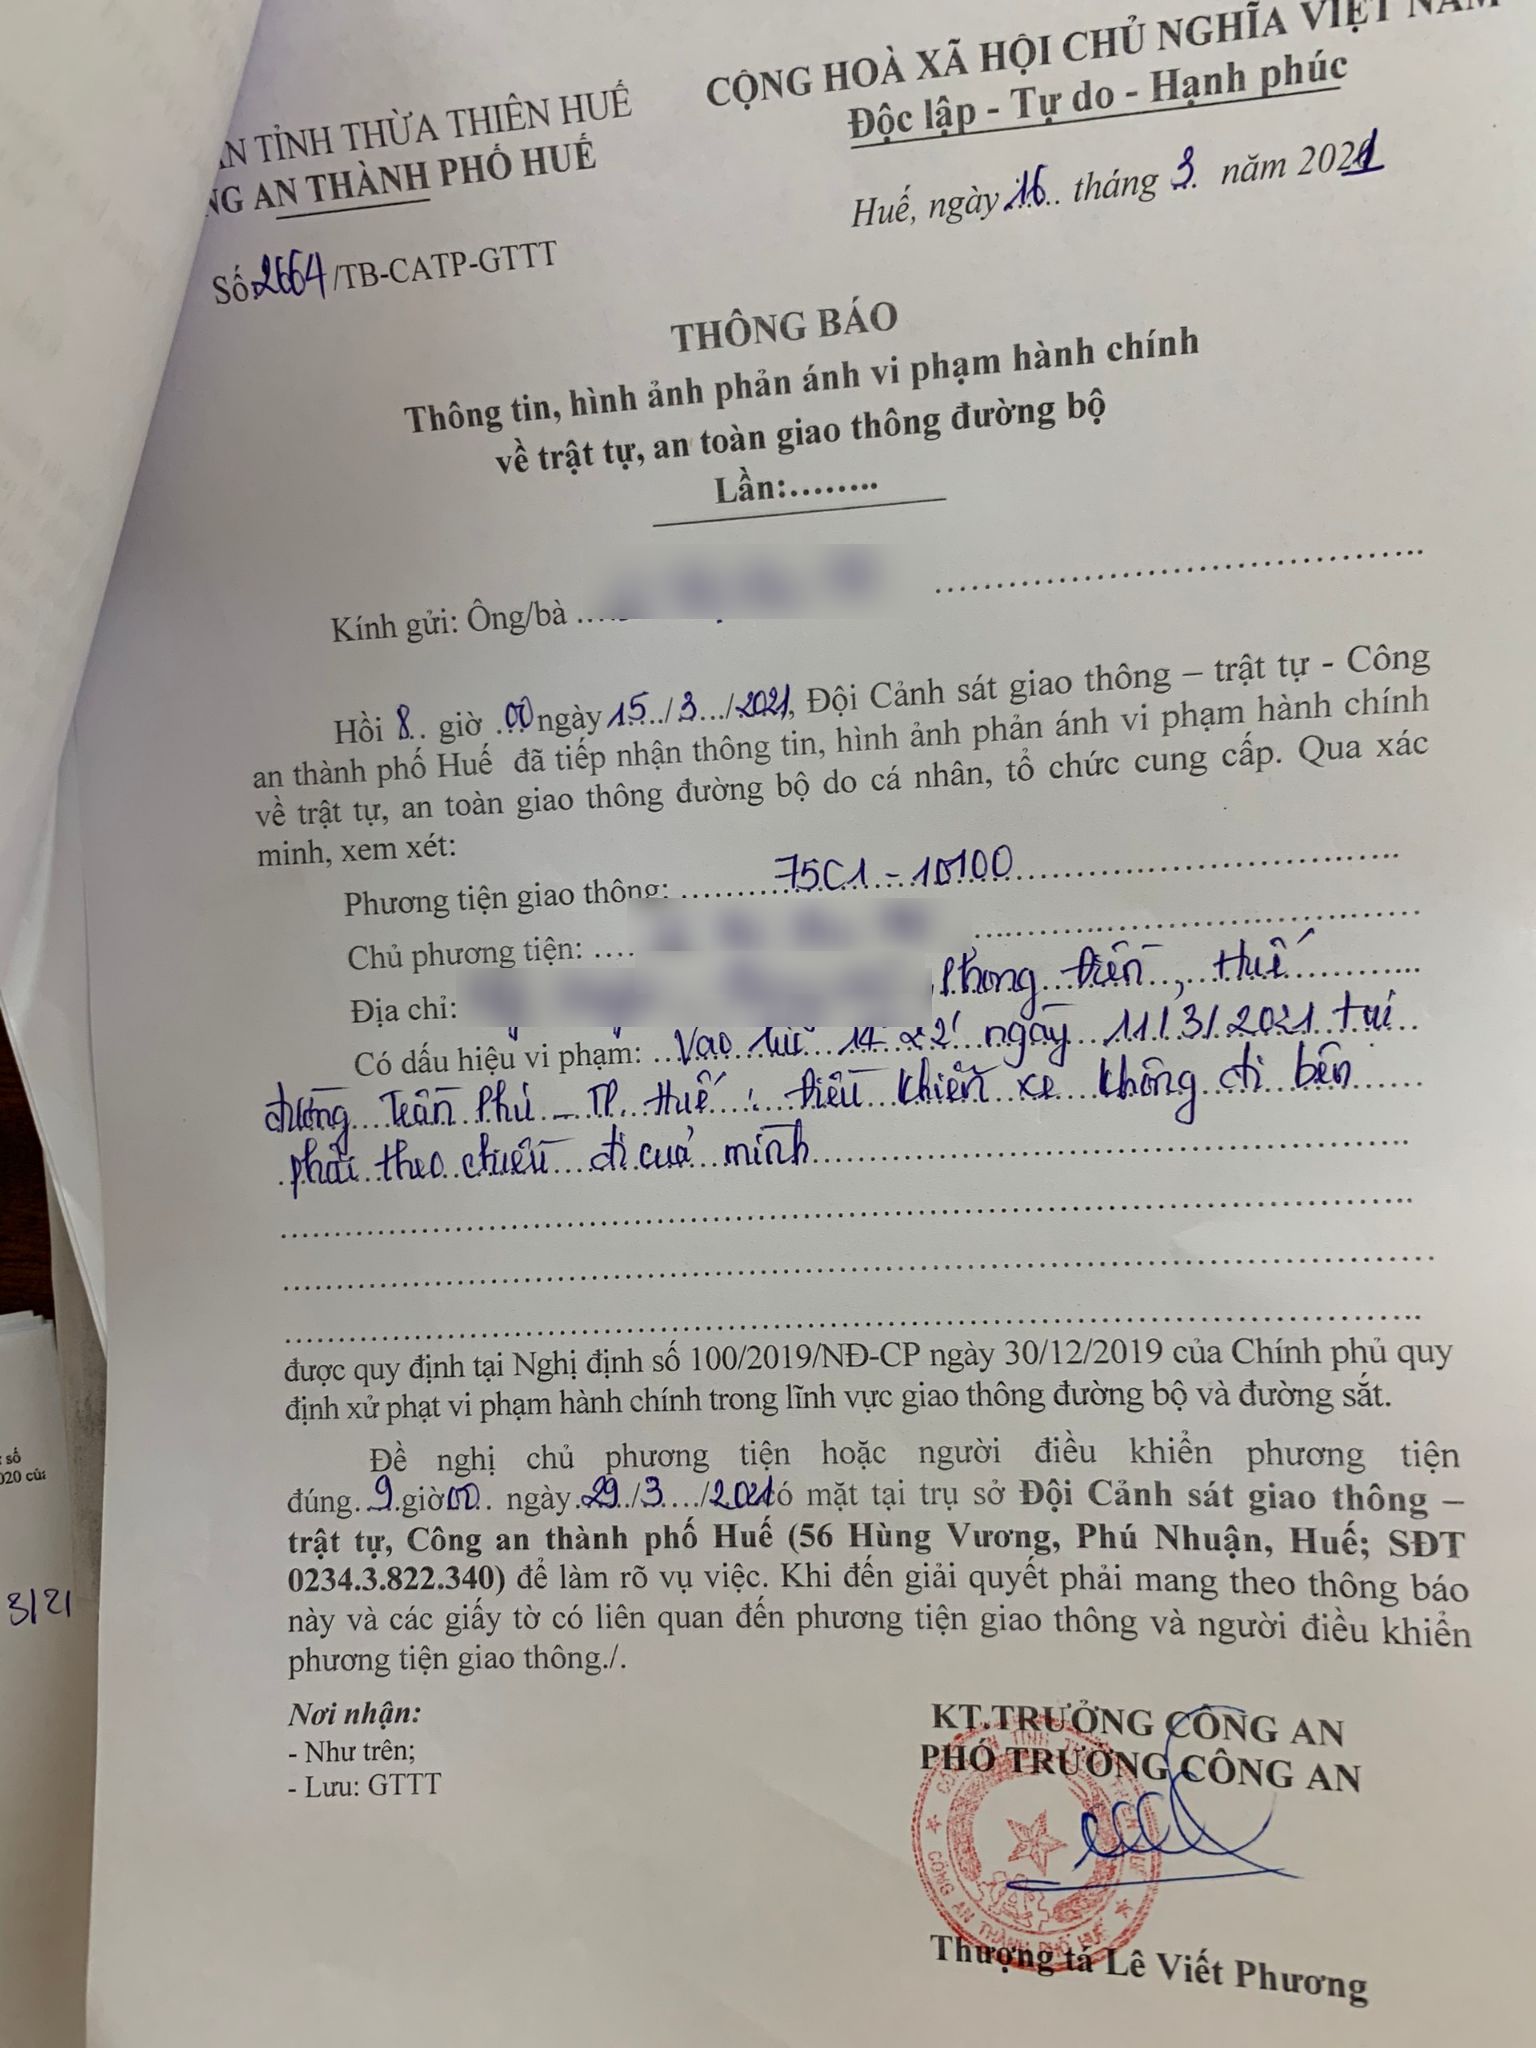 CỘNG HOÀ XÃ HỘI CHỦ NGHĨA VIỆT NAM
Độc lập - Tự do - Hạnh phúc
AN TỈNH THỪA THIÊN HUẾ
NG AN THÀNH PHỐ HUẾ
Huế, ngày 16 tháng 3 năm 2021
Số: 2664/TB-CATP-GTTT
THÔNG BÁO
Thông tin, hình ảnh phản ánh vi phạm hành chính
về trật tự, an toàn giao thông đường bộ
Lần:........
Kính gửi: Ông/bà
Hồi 8 giờ 00 ngày 15/3/2021, Đội Cảnh sát giao thông – trật tự - Công
an thành phố Huế đã tiếp nhận thông tin, hình ảnh phản ánh vi phạm hành chính
về trật tự, an toàn giao thông đường bộ do cá nhân, tổ chức cung cấp. Qua xác
minh, xem xét:
Phương tiện giao thông: 75C1 -
Chủ phương tiện:
Địa chỉ: Phong Điền, Huế
Có dấu hiệu vi phạm: Vào lúc 14 22' ngày 11/3/2021 tại
đường Trần Phú - TP. Huế : Điều khiển xe không đi bên
phải theo chiều đi của mình
được quy định tại Nghị định số 100/2019/NĐ-CP ngày 30/12/2019 của Chính phủ quy
định xử phạt vi phạm hành chính trong lĩnh vực giao thông đường bộ và đường sắt.
Đề nghị chủ phương tiện hoặc người điều khiển phương tiện
đúng 9 giờ 00 ngày 29/3/2021 có mặt tại trụ sở Đội Cảnh sát giao thông –
trật tự, Công an thành phố Huế (56 Hùng Vương, Phú Nhuận, Huế; SĐT
0234.3.822.340) để làm rõ vụ việc. Khi đến giải quyết phải mang theo thông báo
này và các giấy tờ có liên quan đến phương tiện giao thông và người điều khiển
phương tiện giao thông./.
Nơi nhận:
- Như trên;
- Lưu: GTTT
KT.TRƯỞNG CÔNG AN
PHÓ TRƯỞNG CÔNG AN
CÔNG AN THÀNH PHỐ HUẾ
Thượng tá Lê Viết Phương
số
020 của
3/21